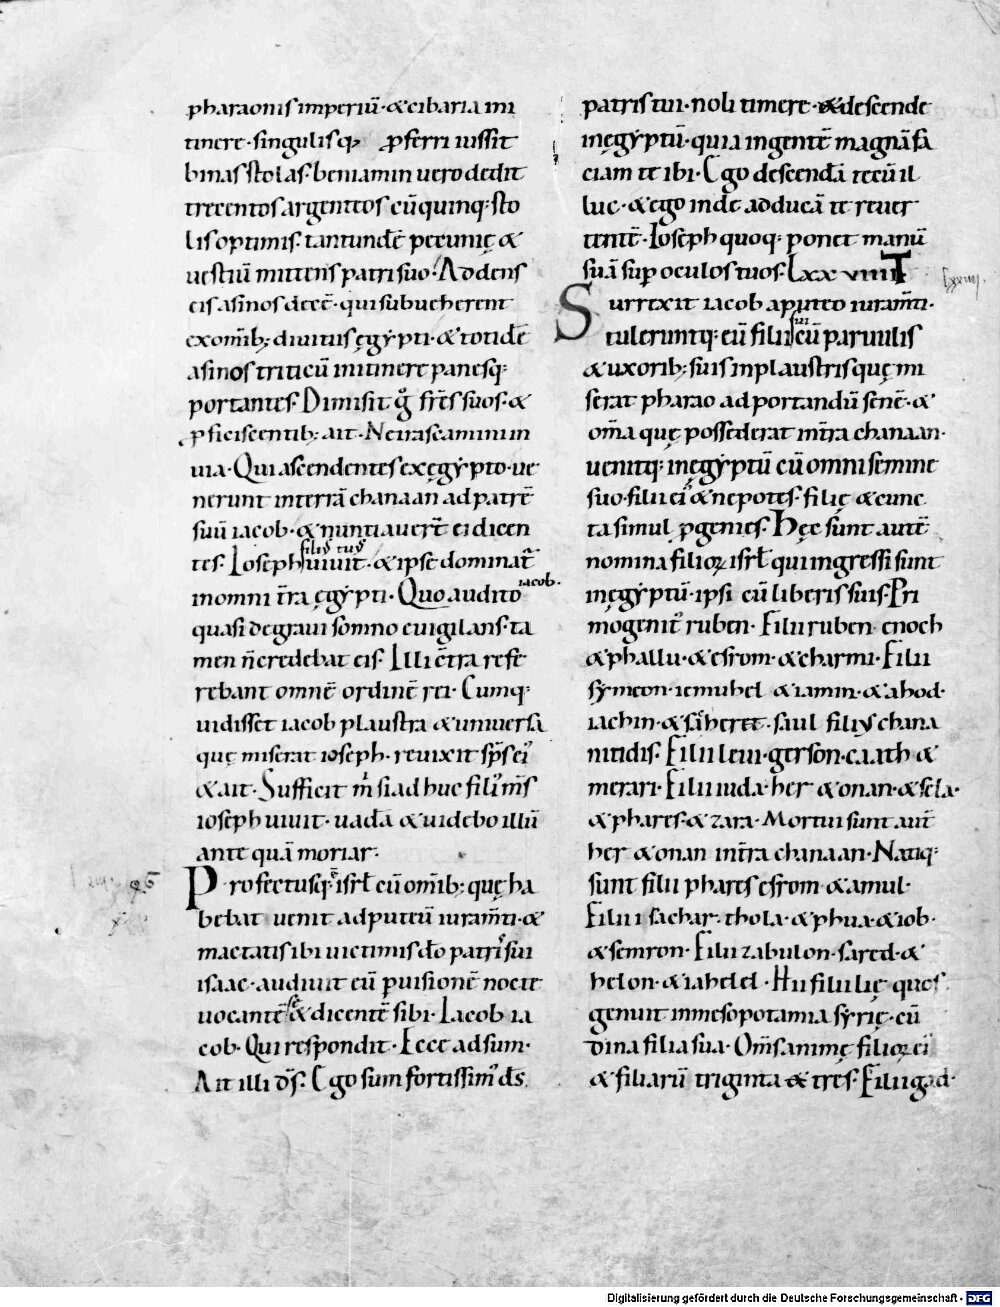 pharaonis imperiū · & cibaria in i
tinere · singulisq; ꝓferri iussit
binas stolas · beniamin uero dedit
trecentos argenteos cū quinq; sto
lis optimis · tantundē pecunię &
uestiū mittens patri suo · Addens
eis asinos decē · qui subueherent
ex omīb; diuitiis ęgẏpti · & totidē
asinos triticū in itinere panesq;
portantes · Dimisit g̊ frēs suos · &
ꝓficiscentib; ait · Ne irascamini in
uia · Qui ascendentes ex ęgẏpto · ue
nerunt in terrā chanaan ad patrē
suū iacob · & nuntiauert̄ ei dicen
tes · Ioseph filiꝰ tuꝰ uiuit · & ipse dominat̃
in omni tr̄a ęgẏpti · Quo audito iacob ·
quasi de graui somno euigilans · ta
men n̄ credebat eis · Illi ec̄tra refe
rebant omnē ordinē rei · Cumq;
uidisset iacob plaustra & uniuersa
quę miserat ioseph · reuixit sp̄s eiꝰ
& ait · Sufficit m̄ si adhuc filiꝰ m̄s
ioseph uiuit · uadā & uidebo illū
ante quā moriar ·
Profectusq; ē isrl̄ cū omīb; quę ha
bebat uenit ad puteū iuram̄ti · &
mactatis ibi uictimis dō patris sui
isaac · audiuit eū ꝑ uisionē nocte
uocantē sē & dicentē sibi · Iacob ia
cob · Qui respondit · Ecce adsum ·
Ait illi d̄s · Ego sum fortissimꝰ ds̄
patris tui · noli timere · & descende
in ęgẏptū · quia in gentē magnā fa
ciam te ibi · Ego descendā tecū il
luc · & ego inde adducā te reuer
tentē · Ioseph quoq; ponet manū
suā sup oculos tuos · Lxxviiii T
Surrexit iacob a puteo iuram̄ti ·
tuleruntq; eū filii sui cū paruulis
& uxorib; suis in plaustris quę mi
serat pharao ad portandū senē · &
om̄a quę possederat in tr̄a chanaan ·
uenitq; in ęgẏptū cū omni semine
suo · filii eiꝰ & nepotes · filię & cunc
ta simul ꝓgenies · Hęc sunt autē
nomina filioꝝ isrl̄ qui ingressi sunt
in ęgẏptū · ipsi cū liberis suis · Pri
mogenitꝰ ruben · Filii ruben enoch
& phallu · & esrom · & charmi · Filii
sẏmeon · iemuhel & iamin · & ahod ·
iachin · & saher& · saul filiꝰ chana
nitidis · Filii leui · gerson · caath &
merari · Filii iuda · her & onan · & sela ·
& phares · & zara · Mortui sunt aut̄
her & onan in tr̄a chanaan · Natiq;
sunt filii phares esrom & amul ·
Filii isachar · thola · & phua · & iob ·
& semron · Filii zabulon · sared · &
helon · & iahelel · Hii filii lię quos
genuit in mesopotamia sẏrię · cū
dina filia sua · Om̄s animę filioꝝ eiꝰ
& filiarū triginta & tres · Filii gad ·
Digitalisierung gefördert durch die Deutsche Forschungsgemeinschaft - DFG